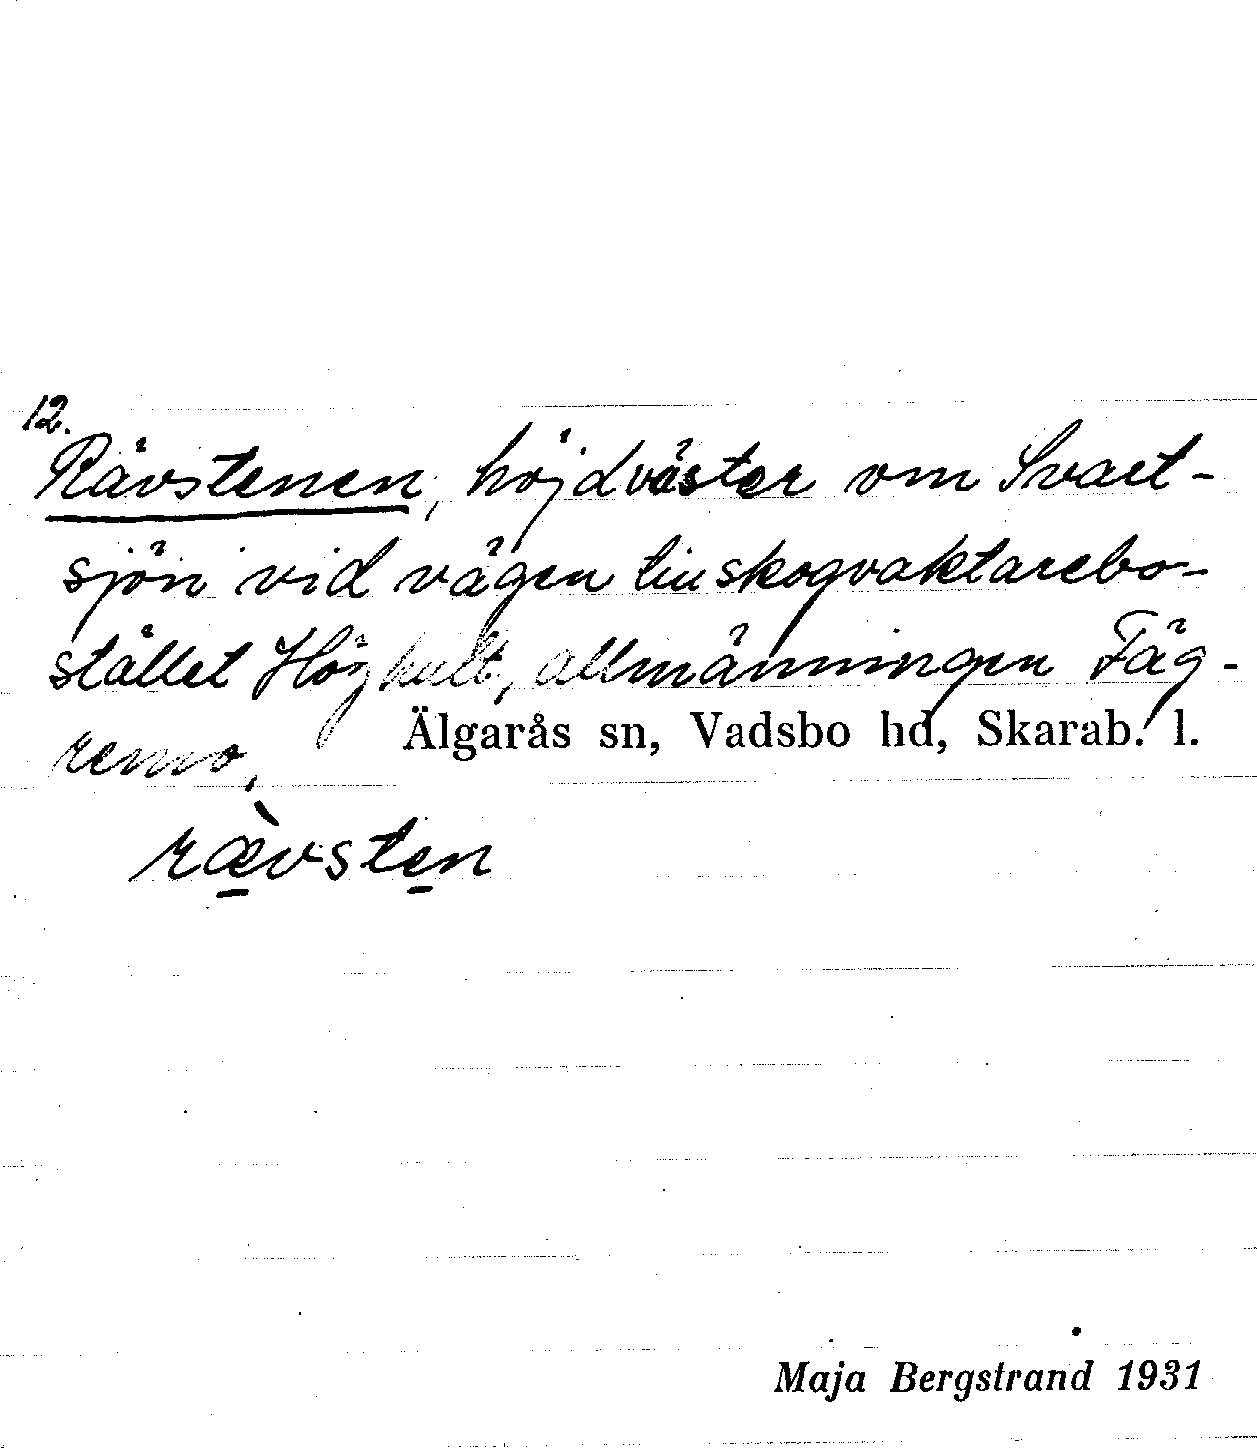 12.
Rävstenen, höjd väster om Svart-
sjön vid vägen till skogvaktarebo-
stället Höghult, allmänningen Fäg-
remo,
Älgarås sn, Vadsbo hd, Skarab. l.
ræ̀vsten
Maja Bergstrand 1931